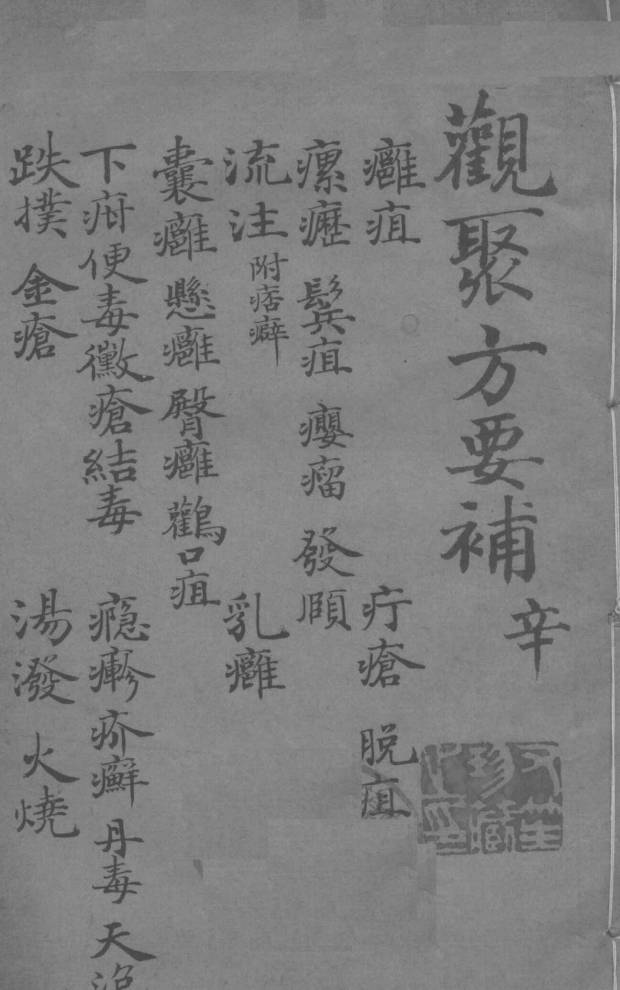 觀聚方要補 辛
癰疽 疔瘡 脱疽
瘰癧 鬂疽 癭瘤 發頤
流注 附痞癖 乳癰
囊癰 懸癰 臀癰 鸛口疽
下疳便毒黴瘡結毒 癮瘮 疥癬 丹毒 天泡
跌撲 金瘡 湯潑 火燒